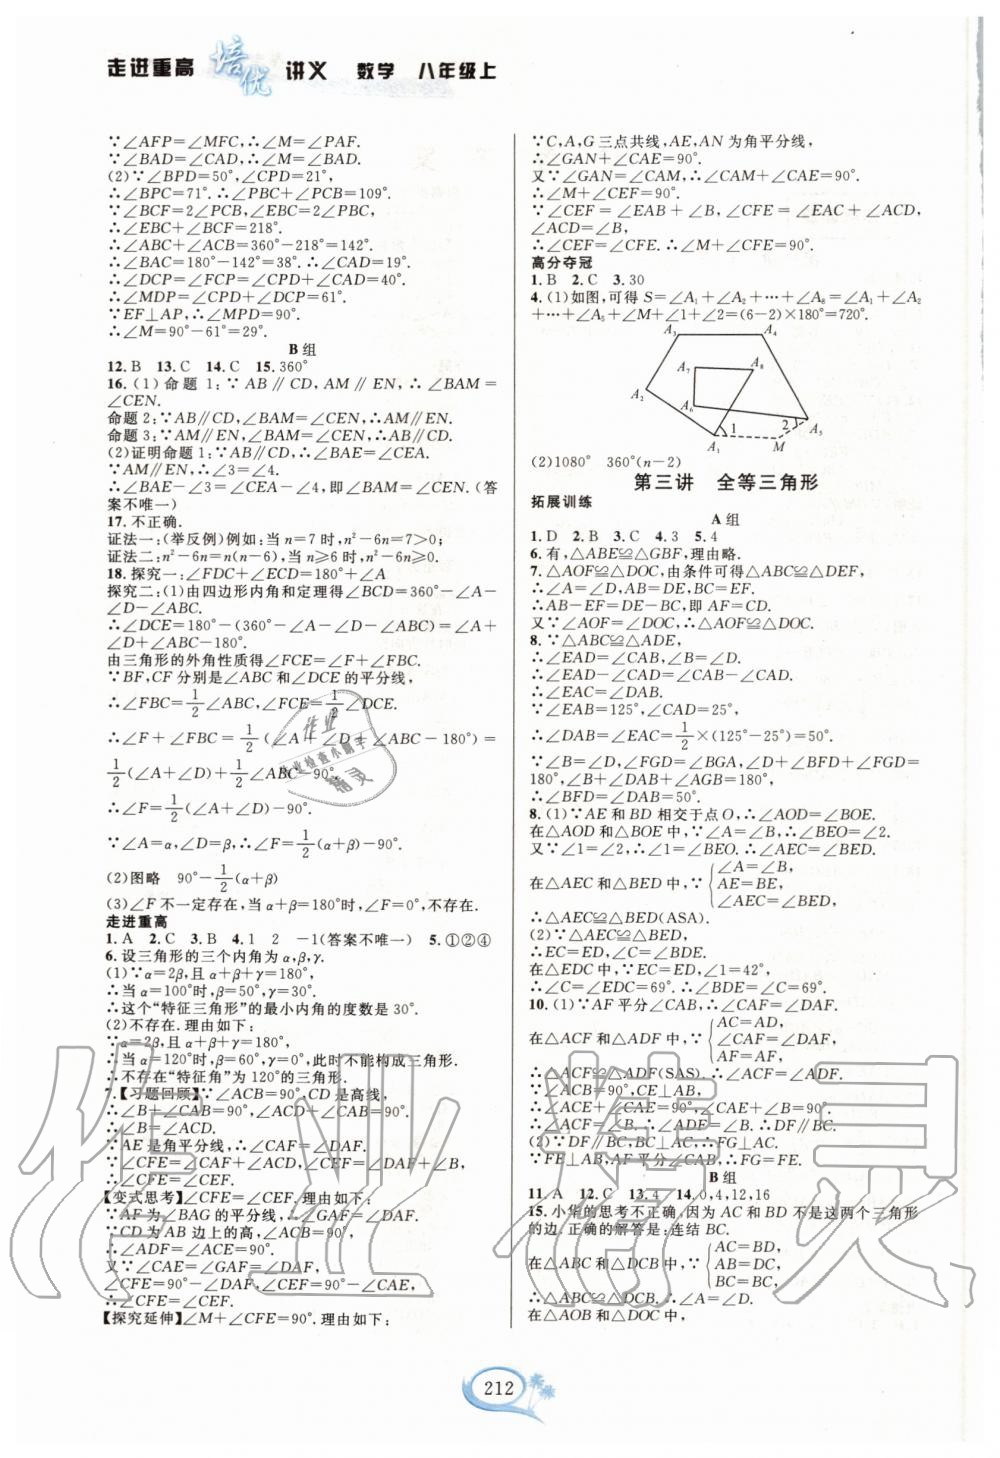 走进重高 培优 讲义 数学 八年级上
∵∠AFP=∠MFC,∴∠M=∠PAF.
∵∠BAD=∠CAD,∴∠M=∠BAD.
(2)∵∠BPD=50°,∠CPD=21°,
∴∠BPC=71°.∴∠PBC+∠PCB=109°.
∵∠BCF=2∠PCB,∠EBC=2∠PBC,
∴∠EBC+∠BCF=218°.
∴∠ABC+∠ACB=360°-218°=142°.
∴∠BAC=180°-142°=38°.∴∠CAD=19°.
∴∠DCP=∠FCP=∠CPD+∠CAD=40°.
∴∠MDP=∠CPD+∠DCP=61°.
∵EF⊥AP,∴∠MPD=90°.
∴∠M=90°-61°=29°.
B 组
12.B 13.C 14.C 15.360°
16.(1)命题 1:∵AB∥CD,AM∥EN,∴∠BAM=
∠CEN.
命题 2:∵AB∥CD,∠BAM=∠CEN,∴AM∥EN.
命题 3:∵AM∥EN,∠BAM=∠CEN,∴AB∥CD.
(2)证明命题 1:∵AB∥CD,∴∠BAE=∠CEA.
∵AM∥EN,∴∠3=∠4.
∴∠BAE-∠3=∠CEA-∠4,即∠BAM=∠CEN.(答
案不唯一)
17.不正确.
证法一:(举反例)例如:当 n=7 时,n²-6n=7>0;
证法二:n²-6n=n(n-6),当 n≥6 时,n²-6n≥0.
18.探究一:∠FDC+∠ECD=180°+∠A
探究二:(1)由四边形内角和定理得∠BCD=360°-∠A-
∠D-∠ABC.
∴∠DCE=180°-(360°-∠A-∠D-∠ABC)=∠A+
∠D+∠ABC-180°.
由三角形的外角性质得∠FCE=∠F+∠FBC.
∵BF,CF 分别是∠ABC 和∠DCE 的平分线,
∴∠FBC=1/2∠ABC,∠FCE=1/2∠DCE.
∴∠F+∠FBC=1/2(∠A+∠D+∠ABC-180°)=
1/2(∠A+∠D)+1/2∠ABC-90°.
∴∠F=1/2(∠A+∠D)-90°.
∵∠A=α,∠D=β,∴∠F=1/2(α+β)-90°.
(2)图略 90°-1/2(α+β)
(3)∠F 不一定存在,当 α+β=180°时,不存在.
走进重高
1.A 2.C 3.B 4.1 2 -1(答案不唯一) 5.①②④
6.设三角形的三个内角为 α,β,γ.
(1)∵α=2β,且 α+β+γ=180°,
∴当 α=100°时,β=50°,γ=30°.
∴这个“特征三角形”的最小内角的度数是 30°.
(2)不存在.理由如下:
∵α=2β,且 α+β+γ=180°,
∴当 α=120°时,β=60°,γ=0°,此时不能构成三角形.
∴不存在“特征角”为 120°的三角形.
7.【习题回顾】∵∠ACB=90°,CD 是高线,
∴∠B+∠CAB=90°,∠ACD+∠CAB=90°.
∴∠B=∠ACD.
∵AE 是角平分线,∴∠CAF=∠DAF.
∵∠CFE=∠CAF+∠ACD,∠CEF=∠DAF+∠B,
∴∠CFE=∠CEF.
【变式思考】∠CEF=∠CFE.理由如下:
∵AF 为∠BAG 的平分线,∴∠GAF=∠DAF.
∵CD 为 AB 边上的高,∠ACB=90°,
∴∠ADF=∠ACE=90°.
又∵∠CAE=∠GAF=∠DAF,
∠CFE=90°-∠DAF,∠CEF=90°-∠CAE,
∴∠CFE=∠CEF.
【探究延伸】∠M+∠CFE=90°.理由如下:
∵C,A,G 三点共线,AE,AN 为角平分线,
∴∠GAN+∠CAE=90°.
又∵∠GAN=∠CAM,∴∠CAM+∠CAE=90°.
∴∠M+∠CEF=90°.
∵∠CEF=∠EAB+∠B,∠CFE=∠EAC+∠ACD,
∠ACD=∠B,
∴∠CEF=∠CFE.∴∠M+∠CFE=90°.
高分夺冠
1.B 2.C 3.30
4.(1)如图,可得 S=∠A₁+∠A₂+⋯+∠A₈=∠A₁+∠A₂
+⋯+∠A₅+∠M+∠1+∠2=(6-2)×180°=720°.
A₃ A₄
A₇ A₈
A₂
A₆
1 2 A₅
A₁ M
(2)1080° 360°(n-2)
第三讲 全等三角形
拓展训练
A 组
1.D 2.B 3.C 4.3 5.4
6.有,△ABE≌△GBF,理由略.
7.△AOF≌△DOC,由条件可得△ABC≌△DEF,
∴∠A=∠D,AB=DE,BC=EF.
∴AB-EF=DE-BC,即 AF=CD.
又∵∠AOF=∠DOC,∴△AOF≌△DOC.
8.∵△ABC≌△ADE,
∴∠EAD=∠CAB,∠B=∠D.
∴∠EAD-∠CAD=∠CAB-∠CAD.
∴∠EAC=∠DAB.
∵∠EAB=125°,∠CAD=25°,
∴∠DAB=∠EAC=1/2×(125°-25°)=50°.
∵∠B=∠D,∠FGD=∠BGA,∠D+∠BFD+∠FGD=
180°,∠B+∠DAB+∠AGB=180°,
∴∠BFD=∠DAB=50°.
8.(1)∵AE 和 BD 相交于点 O,∴∠AOD=∠BOE.
在△AOD 和△BOE 中,∵∠A=∠B,∴∠BEO=∠2.
又∵∠1=∠2,∴∠1=∠BEO.∴∠AEC=∠BED.
在△AEC 和△BED 中,∵{∠A=∠B,
AE=BE,
∠AEC=∠BED,
∴△AEC≌△BED(ASA).
(2)∵△AEC≌△BED,
∴EC=ED,∠C=∠BDE.
在△EDC 中,∵EC=ED,∠1=42°,
∴∠C=∠EDC=69°.∴∠BDE=∠C=69°.
10.(1)∵AF 平分∠CAB,∴∠CAF=∠DAF.
在△ACF 和△ADF 中,∵{AC=AD,
∠CAF=∠DAF,
AF=AF,
∴△ACF≌△ADF(SAS).∴∠ACF=∠ADF.
∵∠ACB=90°,CE⊥AB,
∴∠ACE+∠CAE=90°,∠CAE+∠B=90°.
∴∠ACF=∠B.∴∠ADF=∠B.∴DF∥BC.
(2)∵DF∥BC,BC⊥AC,∴FG⊥AC.
∵FE⊥AB,AF 平分∠CAB,∴FG=FE.
B 组
11.A 12.C 13.4 14.0,4,12,16
15.小华的思考不正确,因为 AC 和 BD 不是这两个三角形
的边.正确的解答是:连结 BC.
在△ABC 和△DCB 中,∵{AC=BD,
AB=DC,
BC=BC,
∴△ABC≌△DCB.∴∠A=∠D.
在△AOB 和△DOC 中,
212
作业精灵